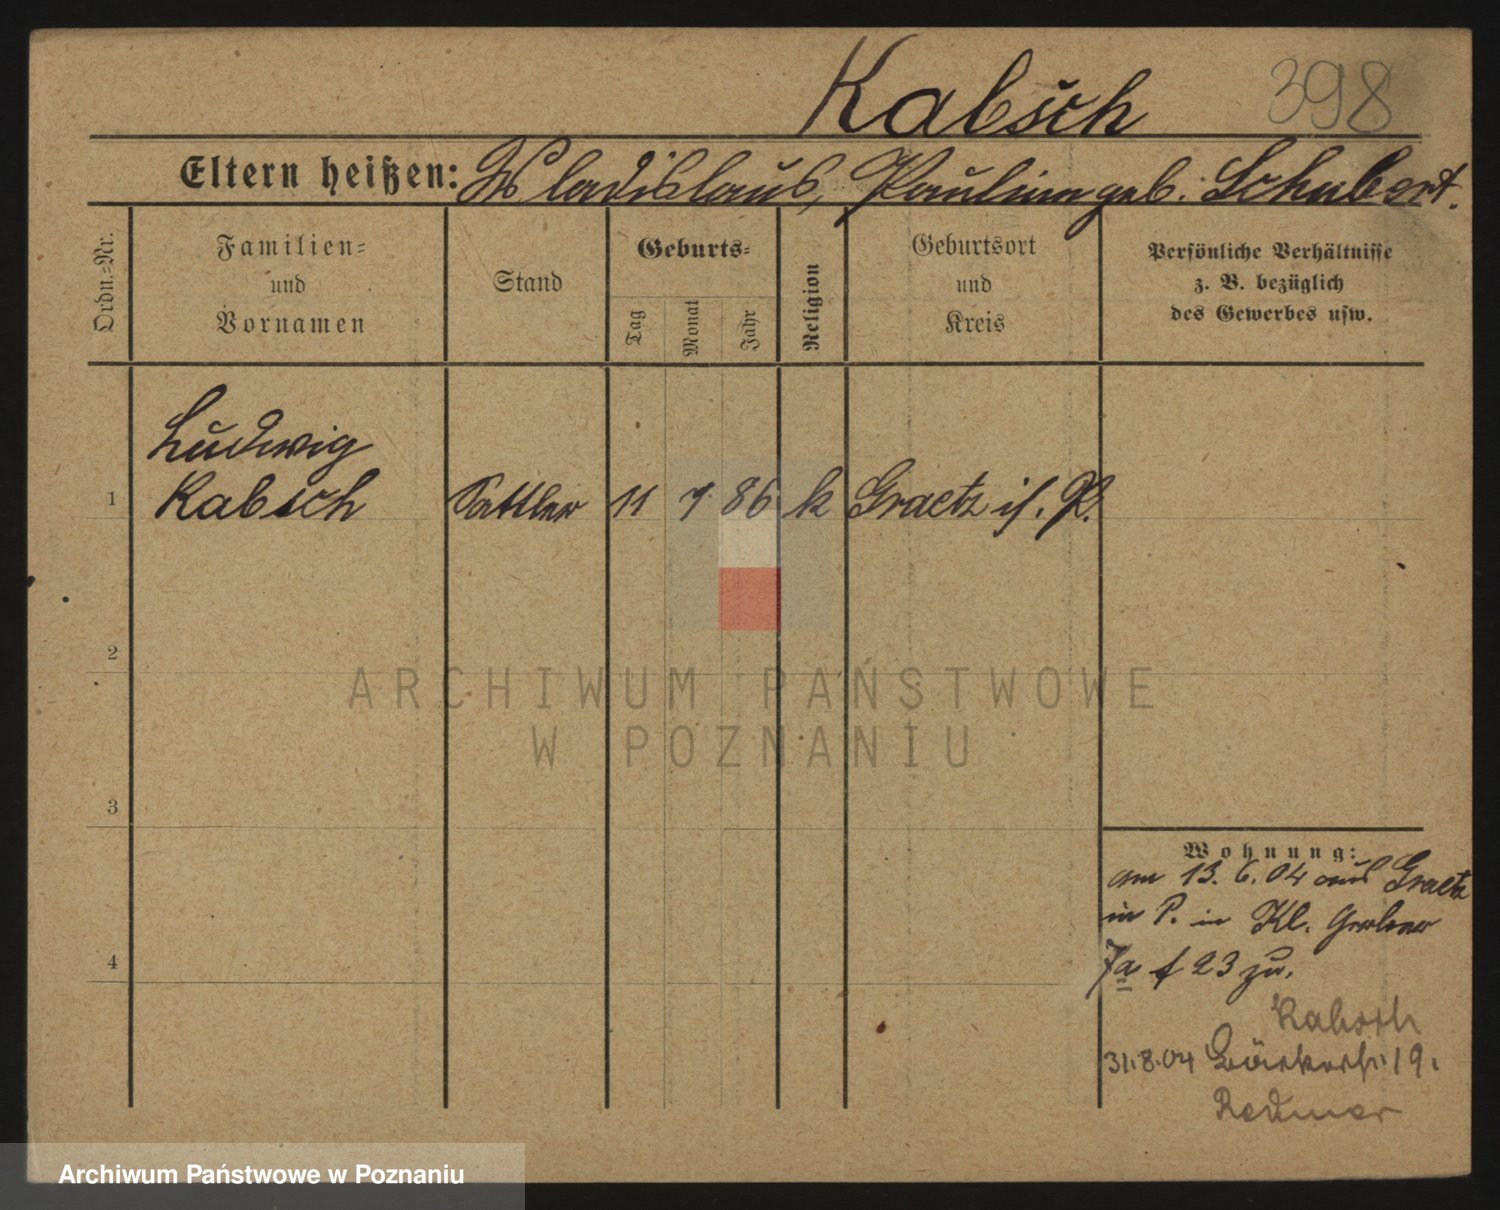 Kabsch 398
Eltern heißen: Wladislaus, Paulina geb. Schubert.
Ordn.=Nr.
Familien=
und
Vornamen
Stand
Geburts=
Tag
Monat
Jahr
Religion
Geburtsort
und
Kreis
Persönliche Verhältnisse
z. B. bezüglich
des Gewerbes usw.
Ludwig
1 Kabsch Sattler 11 7. 86 k Graetz i/. P.
2
3
4
Wohnung:
am 13. 6. 04 aus Graetz
in P. in Kl. Gerber
7a f 23 zu.
Kabsch
31.8.04 19.
Redmer
ARCHIWUM PAŃSTWOWE
W POZNANIU
Archiwum Państwowe w Poznaniu